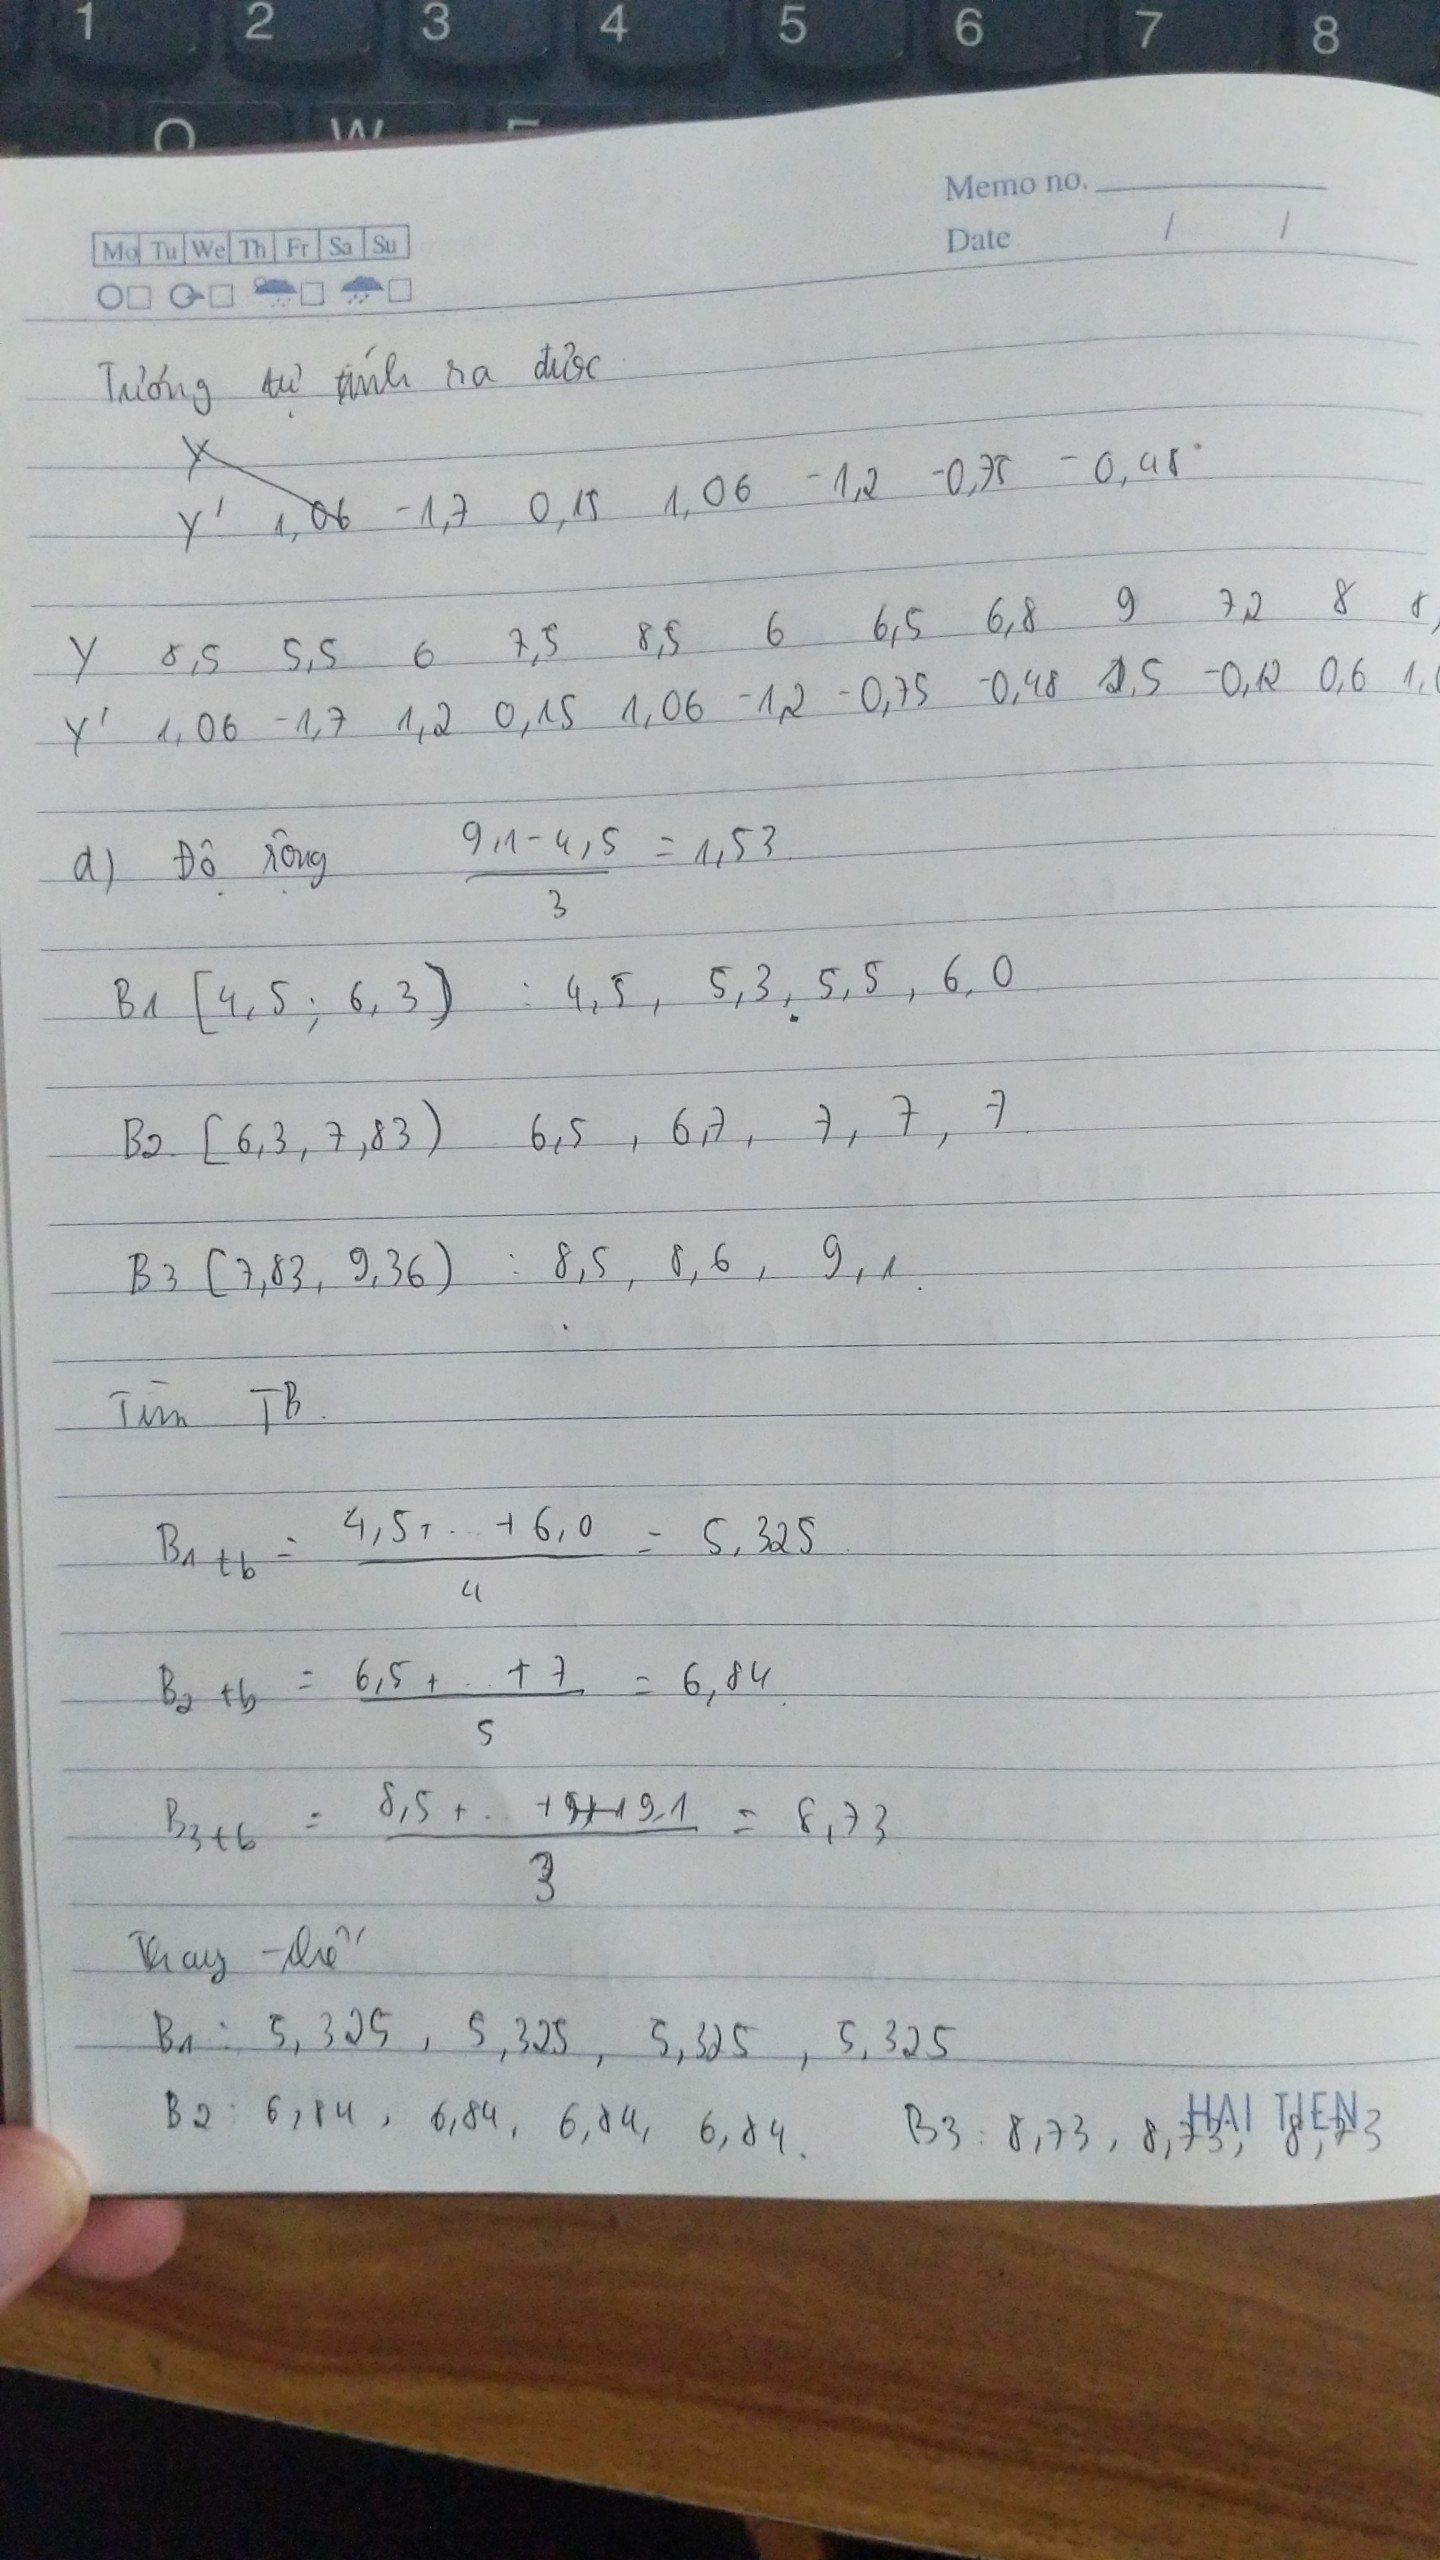 1 2 3 4 5 6 7 8
Q W E
Memo no.
Date / /
Mo Tu We Th Fr Sa Su
Tương tự tính ra được
Y
Y' 1,06 -1,7 0,15 1,06 -1,2 -0,75 -0,48
Y 8,5 5,5 6 7,5 8,5 6 6,5 6,8 9 7,2 8 8,
Y' 1,06 -1,7 1,2 0,15 1,06 -1,2 -0,75 -0,48 1,5 -0,12 0,6 1,0
d) Độ rộng 9,1-4,5 / 3 = 1,53
B1 [4,5; 6,3) : 4,5, 5,3, 5,5, 6,0
B2. [6,3, 7,83) 6,5, 6,7, 7, 7, 7.
B3 [7,83, 9,36) : 8,5, 8,6, 9,1.
Tìm TB.
B1 tb = 4,5+..+6,0 / 4 = 5,325.
B2 tb = 6,5+..+7 / 5 = 6,84.
B3 tb = 8,5+..+9,1 / 3 = 8,73
Thay thế
B1: 5,325, 5,325, 5,325, 5,325
B2: 6,84, 6,84, 6,84, 6,84. B3: 8,73, 8,73, 8,73
HAI TIEN